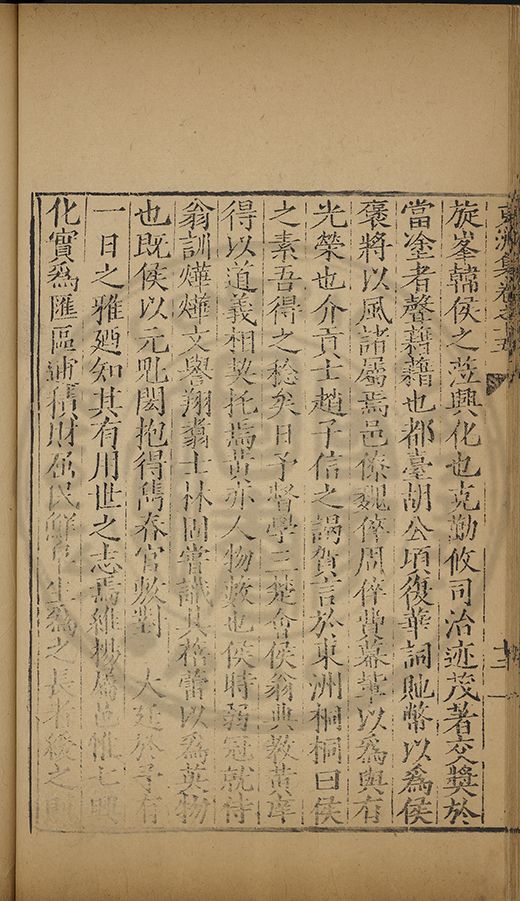 東洲集卷之十五
十三
旋峯韓侯之蒞興化也克勤攸司治迹茂著交獎於
當塗者聲藉藉也都臺胡公頃復華詞貤幣以為侯
褒將以風諸屬焉邑僚魏倅周倅費幕輩以為與有
光榮也介貢士趙子信之謁賀言於東洲桐桐曰侯
之素吾得之稔矣日予督學三楚會侯翁典教黃庠
得以道義相契托焉黃亦人物藪也侯時弱冠就侍
翁訓燁燁文譽翔翥士林固嘗識其格蕾以為英物
也既侯以元魁閎抱得雋春官敭對 大廷於予有
一日之雅廼知其有用世之志焉維揚屬邑惟興
化實為匯區逋積財 民鮮 生為之長者緩之則